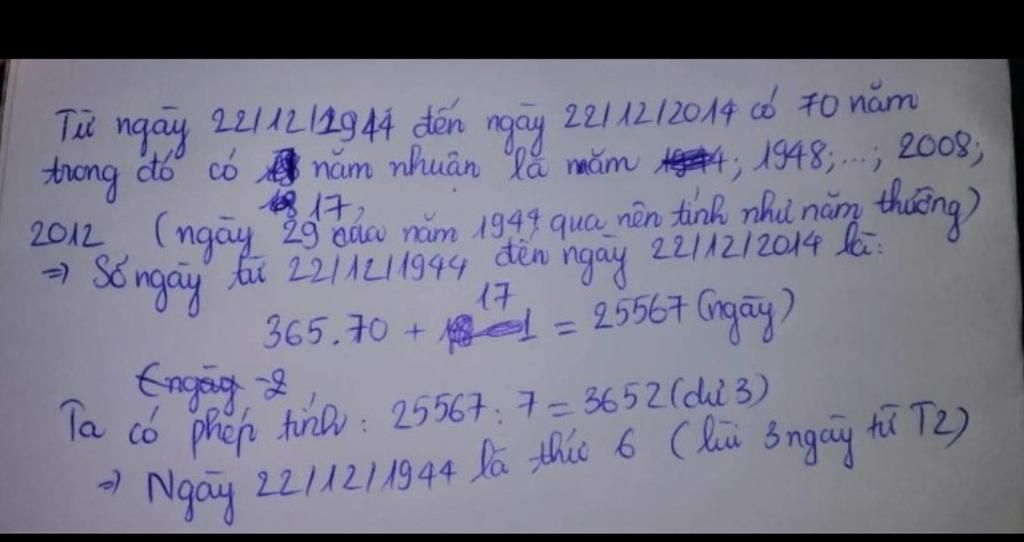 Từ ngày 22/12/1944 đến ngày 22/12/2014 có 70 năm
trong đó có năm nhuận là năm 1944; 1948; ...; 2008;
17,
2012 (ngày 29 của năm 1944 qua nên tính như năm thường)
⇒ Số ngày từ 22/12/1944 đến ngày 22/12/2014 là:
17
365.70 + 1 = 25567 (ngày)
(ngày -2
Ta có phép tính: 25567 : 7 = 3652 (dư 3)
⇒ Ngày 22/12/1944 là thứ 6 (lùi 3 ngày từ T2)